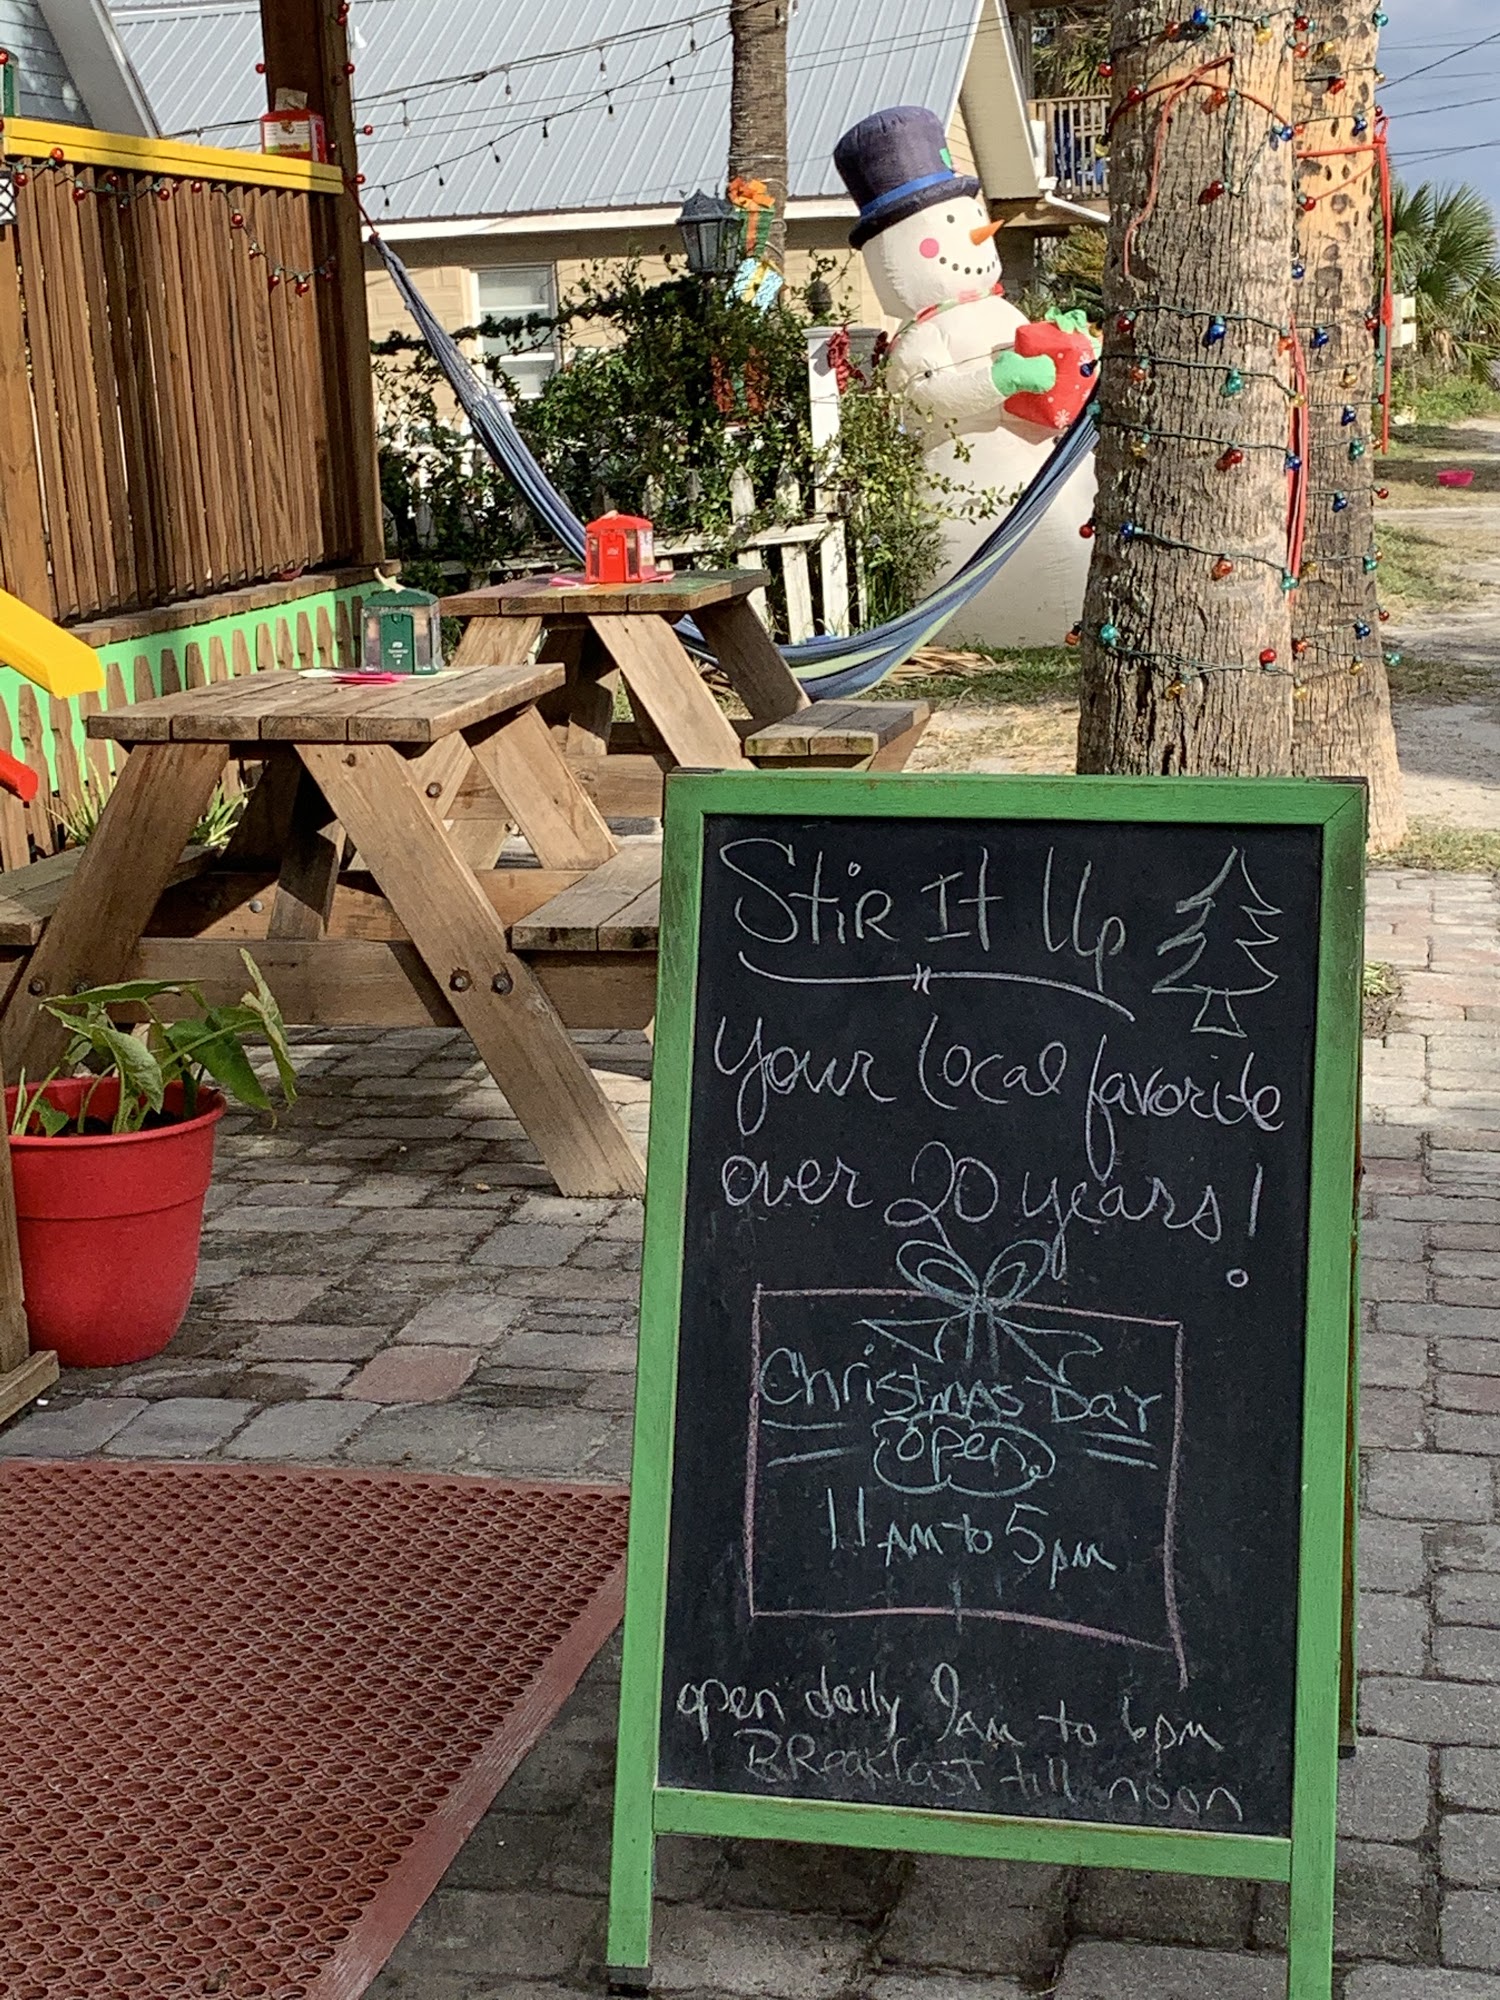 Stir It Up
Your local favorite
over 20 years!
Christmas Day
Open
11 AM to 5pm
open daily 9am to 6pm
Breakfast till noon